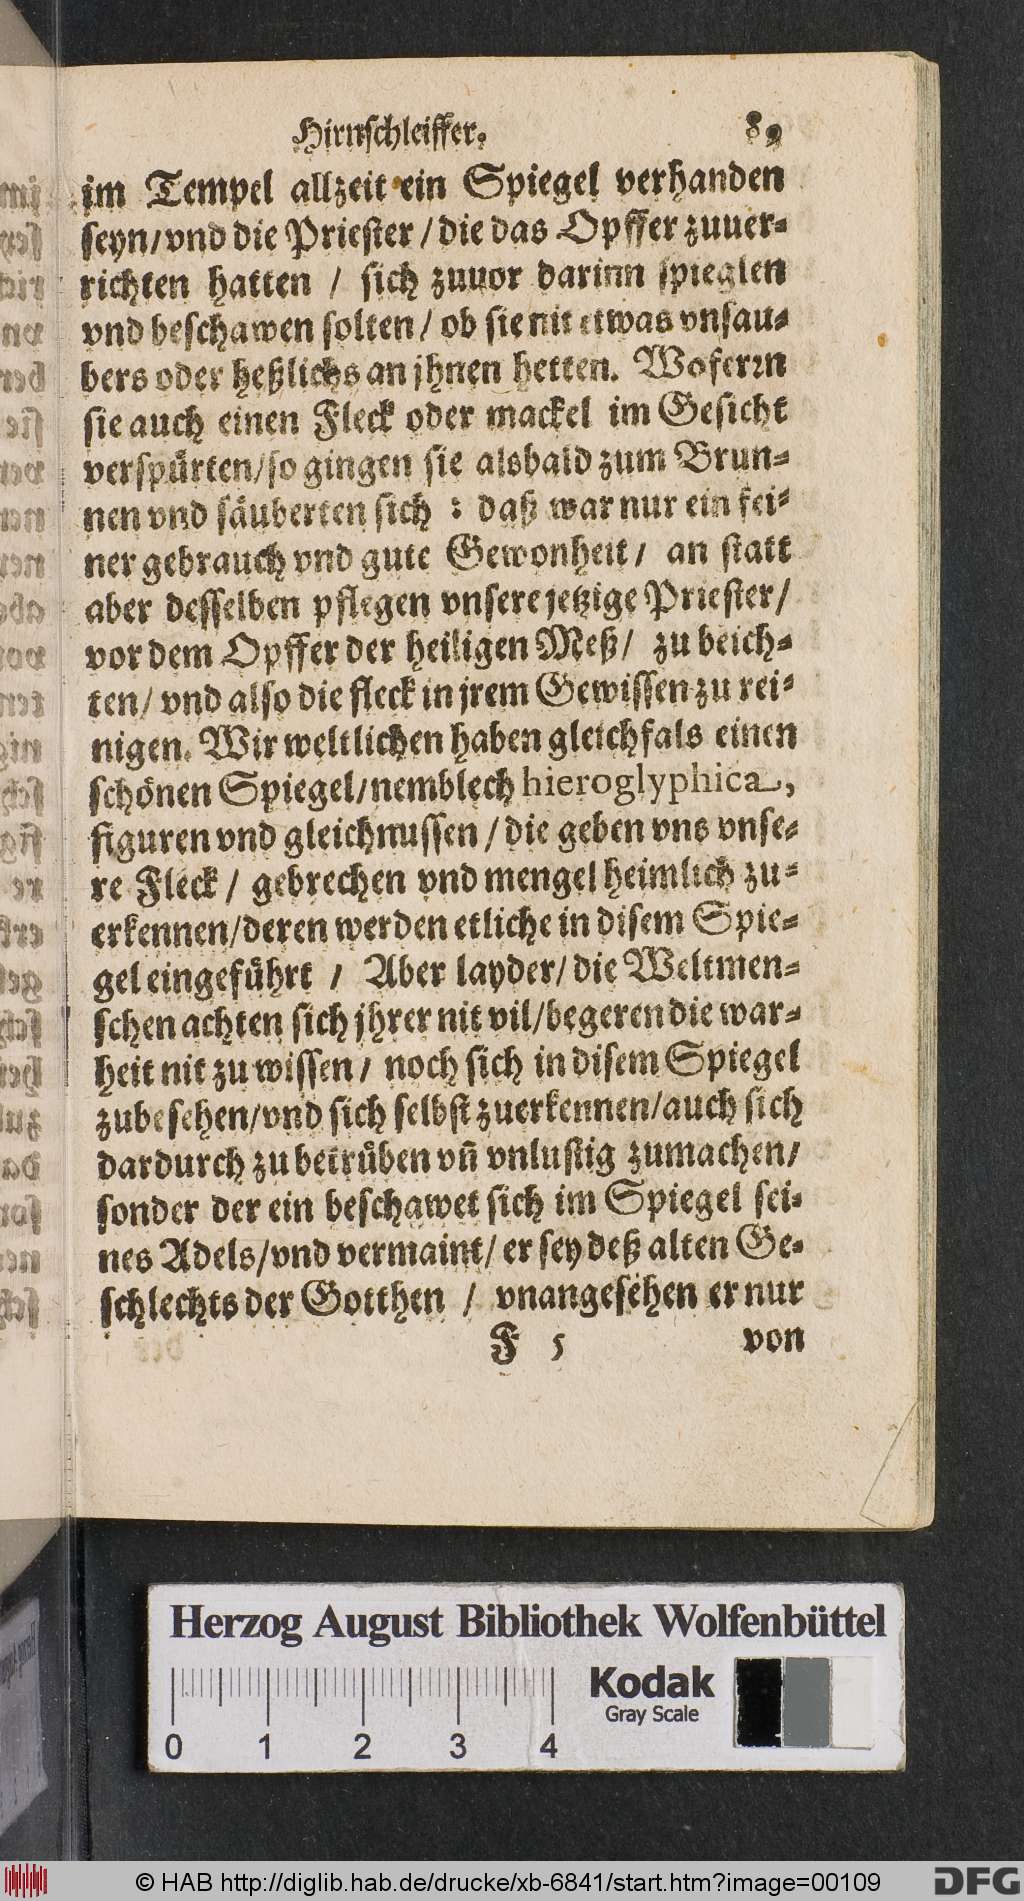 Hirnschleiffer. 89
im Tempel allzeit ein Spiegel verhanden
seyn/vnd die Priester/die das Opffer zuuer-
richten hatten / sich zuuor darinn spieglen
vnd beschawen solten/ ob sie nit etwas vnsau-
bers oder heßlichs an jhnen hetten. Woferrn
sie auch einen Fleck oder mackel im Gesicht
verspürten/so gingen sie alsbald zum Brun-
nen vnd säuberten sich : daß war nur ein fei-
ner gebrauch vnd gute Gewonheit/ an statt
aber desselben pflegen vnsere jetzige Priester/
vor dem Opffer der heiligen Meß/ zu beich-
ten/ vnd also die fleck in jrem Gewissen zu rei-
nigen. Wir weltlichen haben gleichfals einen
schönen Spiegel/nemblech hieroglyphica,
figuren vnd gleichnussen / die geben vns vnse-
re Fleck / gebrechen vnd mengel heimlich zu-
erkennen/deren werden etliche in disem Spie-
gel eingeführt / Aber layder/ die Weltmen-
schen achten sich jhrer nit vil/begeren die war-
heit nit zu wissen/ noch sich in disem Spiegel
zubesehen/vnd sich selbst zuerkennen/auch sich
dardurch zu betrüben vñ vnlustig zumachen/
sonder der ein beschawet sich im Spiegel sei-
nes Adels/vnd vermaint/ er sey deß alten Ge-
schlechts der Gotthen / vnangesehen er nur
F 5 von
Herzog August Bibliothek Wolfenbüttel
Kodak
Gray Scale
0 1 2 3 4
© HAB http://diglib.hab.de/drucke/xb-6841/start.htm?image=00109
DFG